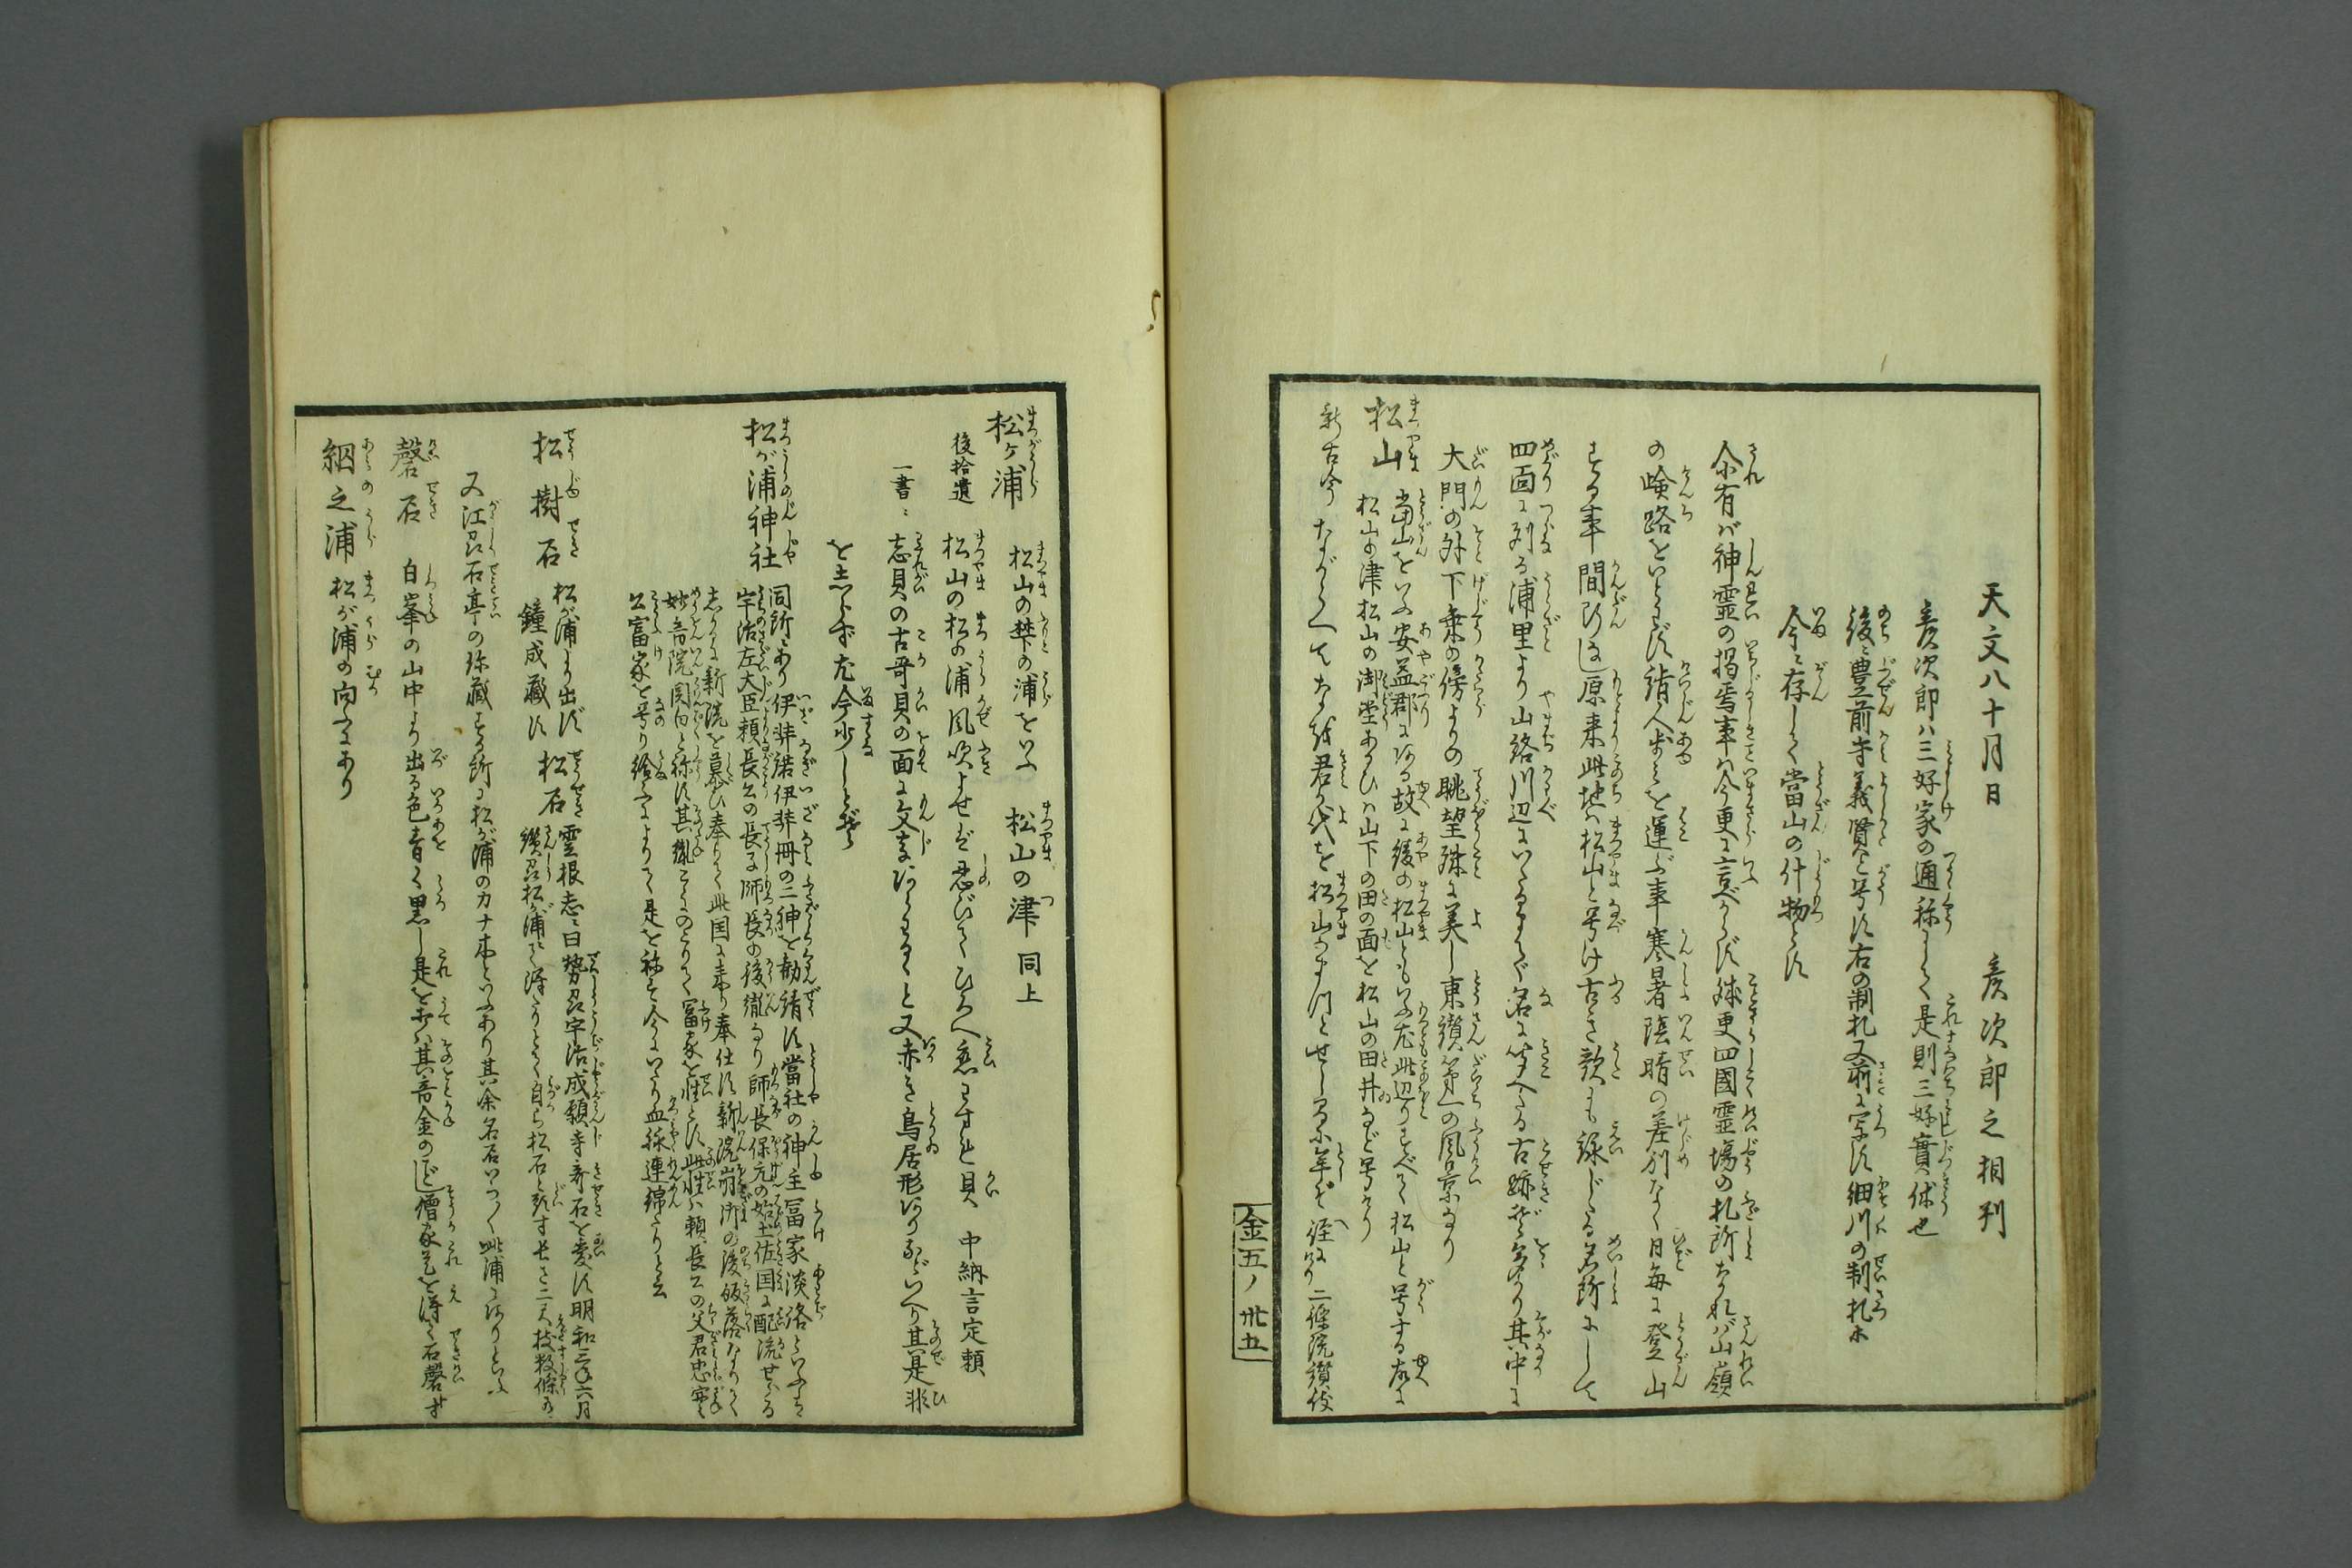 天文八十月日　彦次郎之相判
彦次郎ハ三好家の通称にして是則三好實休也
後ニ豊前守義賢と号す右の制札又前に写す細川の制札ホ
今ニ存して當山の什物とす
尒有バ神霊の掲焉事ハ今更に言べからず殊更四國霊場の札所なれバ山嶺
の嶮路をいとはず詣人歩を運ぶ事寒暑陰晴の差別なく日毎に登山
する事間断なし原来此地ハ松山と号け古き歌にも詠じたる名所にして
四面に列る浦里より山路川辺にいたるまで名に聞へたる古跡ぞ多かり其中に
大門の外下乗の傍よりの眺望殊に美し東讃第一の風景なり
松山　當山をいふ安益郡にある故に綾の松山ともいふ尤此辺りすべて松山と号する故に
松山の津松山の御堂あるひハ山下の田の面を松山の田井など号せり
新古今　ながらへてなを君が代を松山の待とせしまに年ぞ経にける　二條院讃岐
金五ノ卅五
松ヶ浦　松山の麓の浦をいふ　松山の津　同上
後拾遺　松山の松の浦風吹よせバ忍びてひろへ恋わすれ貝　中納言定頼
一書ニ　志貝の古哥貝の面に文字あらはるゝと又赤き鳥居形ありなどいへり其是非
をしらず尤今少しとぞ
松が浦神社　同所にあり伊弉諾伊弉冊の二神を勧請す當社の神主冨家淡路といふハ
宇治左大臣頼長公の長子師長の後胤なり師長保元の始土佐国に配流せらる
しかるに新院を慕ひ奉りて此国に来り奉仕す新院崩御の後皈落なりて
妙音院関白と称す其胤こゝにのこりて冨家を姓とす此姓ハ頼長公の父君忠實
公富家と号り給ふによりて是を称す今にいたり血縁連綿たりと云
松樹石　松が浦より出ず　松石　雲根志ニ曰勢州宇治成願寺奇石を愛す明和三年六月
鐘成蔵す　讃州松が浦にて得たりとて自ら松石と題す長さ二尺枝数條あり
又江州石亭の珎蔵する所に松が浦のカナ木といふあり其余名石いづくも此浦にありといふ
磬石　白峯の山中より出る色青く黒し是をうてバ其音金のごとし僧家是を得て石磬とす
網之浦　松が浦の向ふにあり